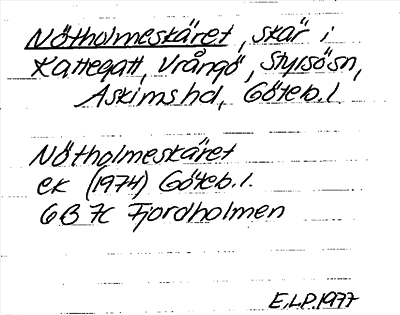 Nötholmeskäret, skär i
Kattegatt, Vrångö, Styrsösn,
Askimshd, Göteb.l
Nötholmeskäret
ek (1974) Göteb.l.
6B 7c Fjordholmen
E.L.P.1977